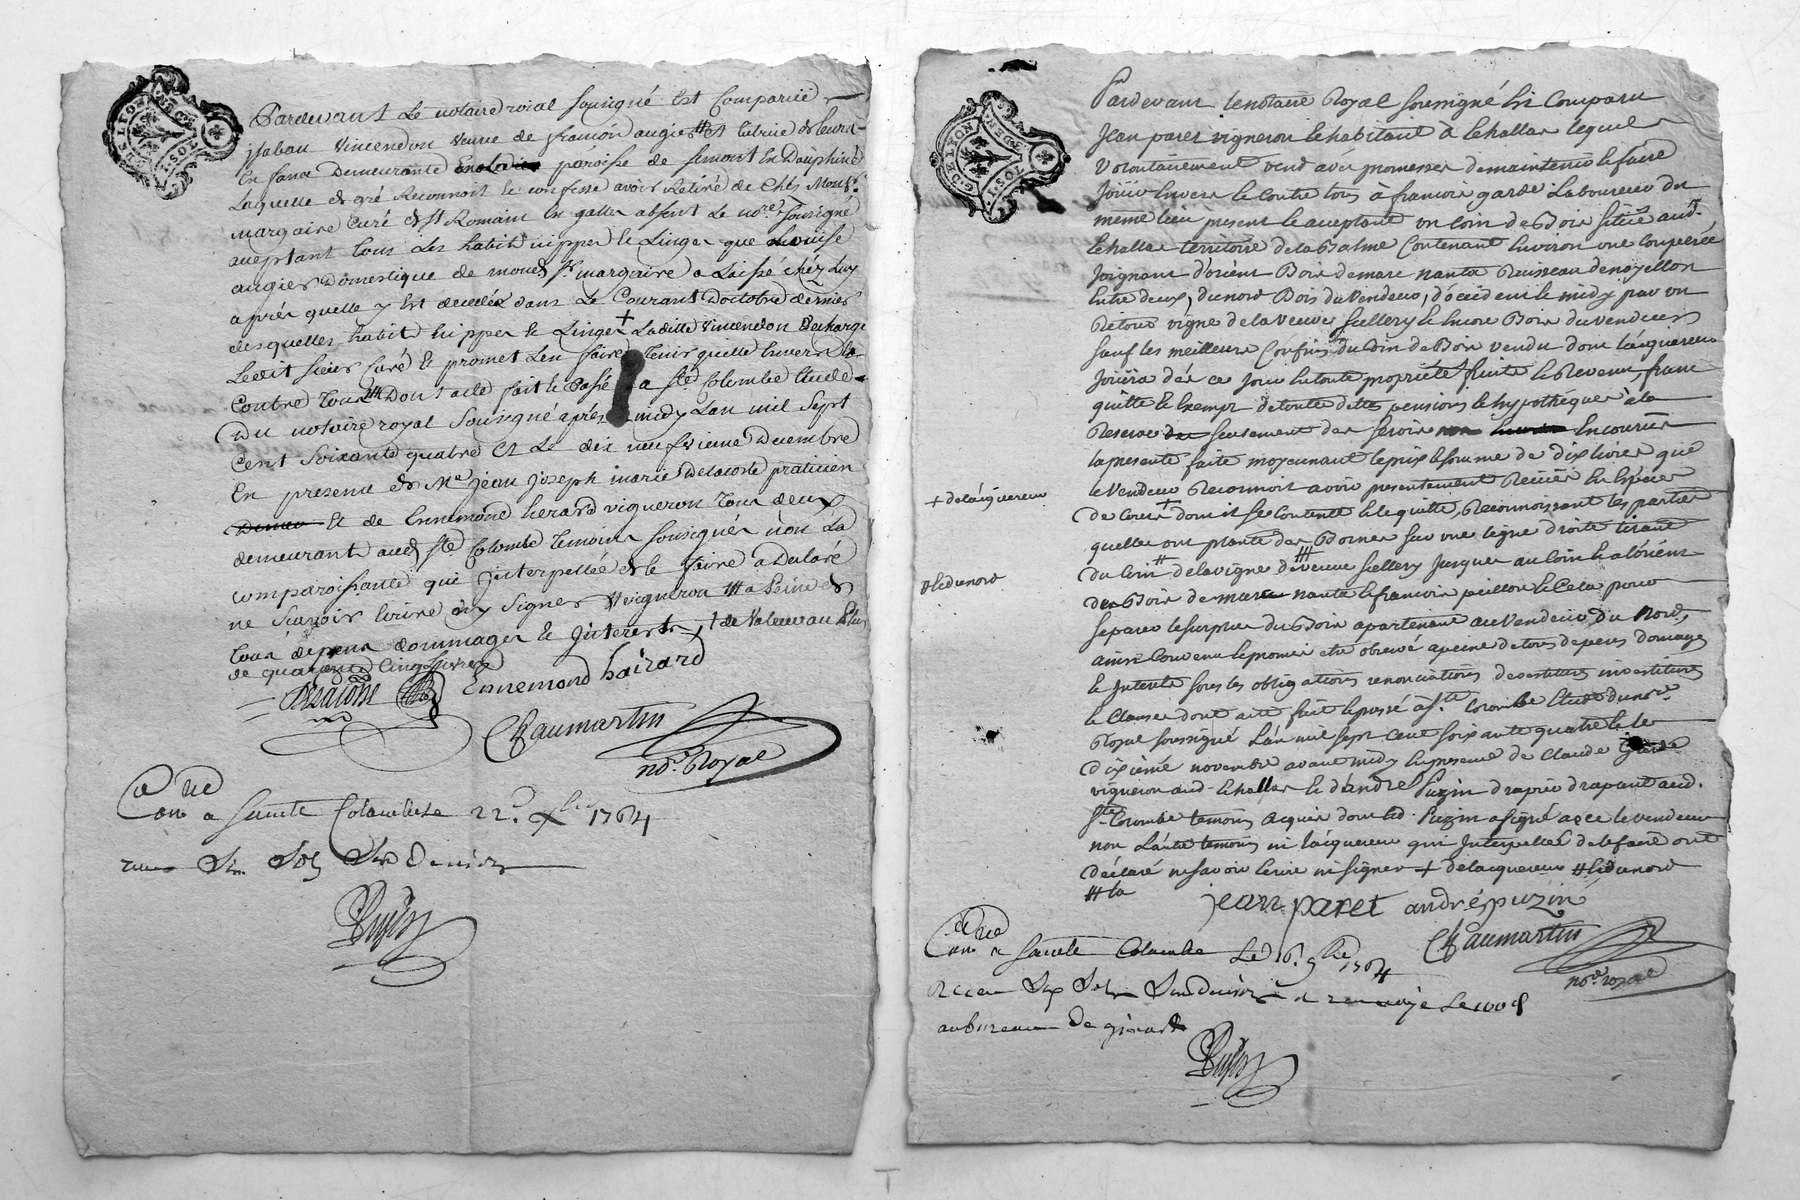 Pardevant Le notaire roial sousigné Est Comparüe
ysabau Vincendon veuve de framon augier # Et tutrice de leurs
En fans Demeurante paroisse de simont En Dauphiné
Laquelle de gré Reconnoit Et confesse avoir retiré de Chés Monsr.
margaire Curé de St Romain En galles absent Le nore. sousigné
aceptant tous Les habit nipper Et Linger que Louise
augier Domestique de moud sr. margaire a Laissé chéz Luy
aprés quelle y Est decedée dans Le Courant Doctobre dernier
desquelles habit nipper Et Linger + Laditte Vincendon Decharge
Ledit sieur Curé Et promet L'en faire tenir quitte Envers Et
Contre tous # Dont acte fait Et passé a Ste Colombe Etude
Du notaire royal Sousigné aprés midy L'an mil Sept
Cent Soixante quatre Et Le dix neufvieme Decembre
En presence de Me Jean Joseph marie Delacoste praticien
Et de Ennemond herard vigneron tous deux
demeurant aud Ste Colombe temoins sousignés non La
comparoissante qui Interpellée de Le faire a Declaré
ne sçavoir Ecrire ny signer # vigneron ## a Peine de
tous depens dommages Et Interests + de Valeur au Plus
de quarante Cinq Livres
Delacoste Ennemond hairard
Chaumartin
nore. Royal
Cotre
a Sainte Colombe 22e xbre 1764
six Den
Pardevant Le notaire Royal soussigné Est Comparu
Jean paret vigneron Et habitant à Lehallar Lequel
volontairement vend avec promesse de maintenir Et faire
Jouir Envers Et Contre tous à francois garde Laboureur du
même lieu present Et aceptant un coin de Bois situé aud.
Lehallar territoire de la Balme Contenant Environ une Couperée
Joignant d'orient Bois de marc nanta Ruisseau de noyellon
Entre deux, du nord Bois du vendeur, d'occident Et midy par un
Detour vigne de la veuve sellery Et Encore Bois du vendeur
sauf Les meilleurs Confins du Dit de Bois vendu dont L'acquereur
Jouira dés ce jour En toute propriété fruits Et Revenu, franc
quitte Et Exempt de toute dettes pensions Et hypothéques à la
Reserve seulement des servis Encourir
La presente faite moyennant Le prix Et somme de dix Livres que
Le vendeur Reconnoit avoir presentement Reçüe En Espéce
de Cours + dont il se Contente Et Le quitte, Reconnoissant Les parties
+ de Lacquereur
quelles ont planté des Bornes sur une Ligne droite tirant
du Coin # de La vigne de ### veuve sellery Jusques au Coin Et a L'orient
# Et du nord
du Bois de marc nanta Et francois peillon Et Cela pour
separer Le surplus du Bois apartenant au Vendeur, Du Nord,
ainsi Convenu Et promis Etre observé a peine de tous depens domages
Et Interets sous Les obligations renonciations devestitures investitures
Et Clauses dont acte fait Et passé a Ste. Colombe Etude du nore.
Royal soussigné L'an mil sept Cent soixante quatre Et Le
dixiéme novembre avant midy En presence de Claude Garde
vigneron aud. Lehallar Et d'andré Puzin drapier drapant aud.
Ste. Colombe temoins requis dont Led. Puzin a signé avec Le vendeur
non L'autre temoins ni L'acquereur qui Interpellés de Le faire ont
déclaré ne savoir Ecrire ni signer + de Lacquereur # Et du nord
### La
jean paret andré puzin
Chaumartin
nore. royal
Cotre
a Sainte Colombe Le 16e 9bre 1764
Receu Six Sols Six Deniers Et renvoyé
au bureau De givors